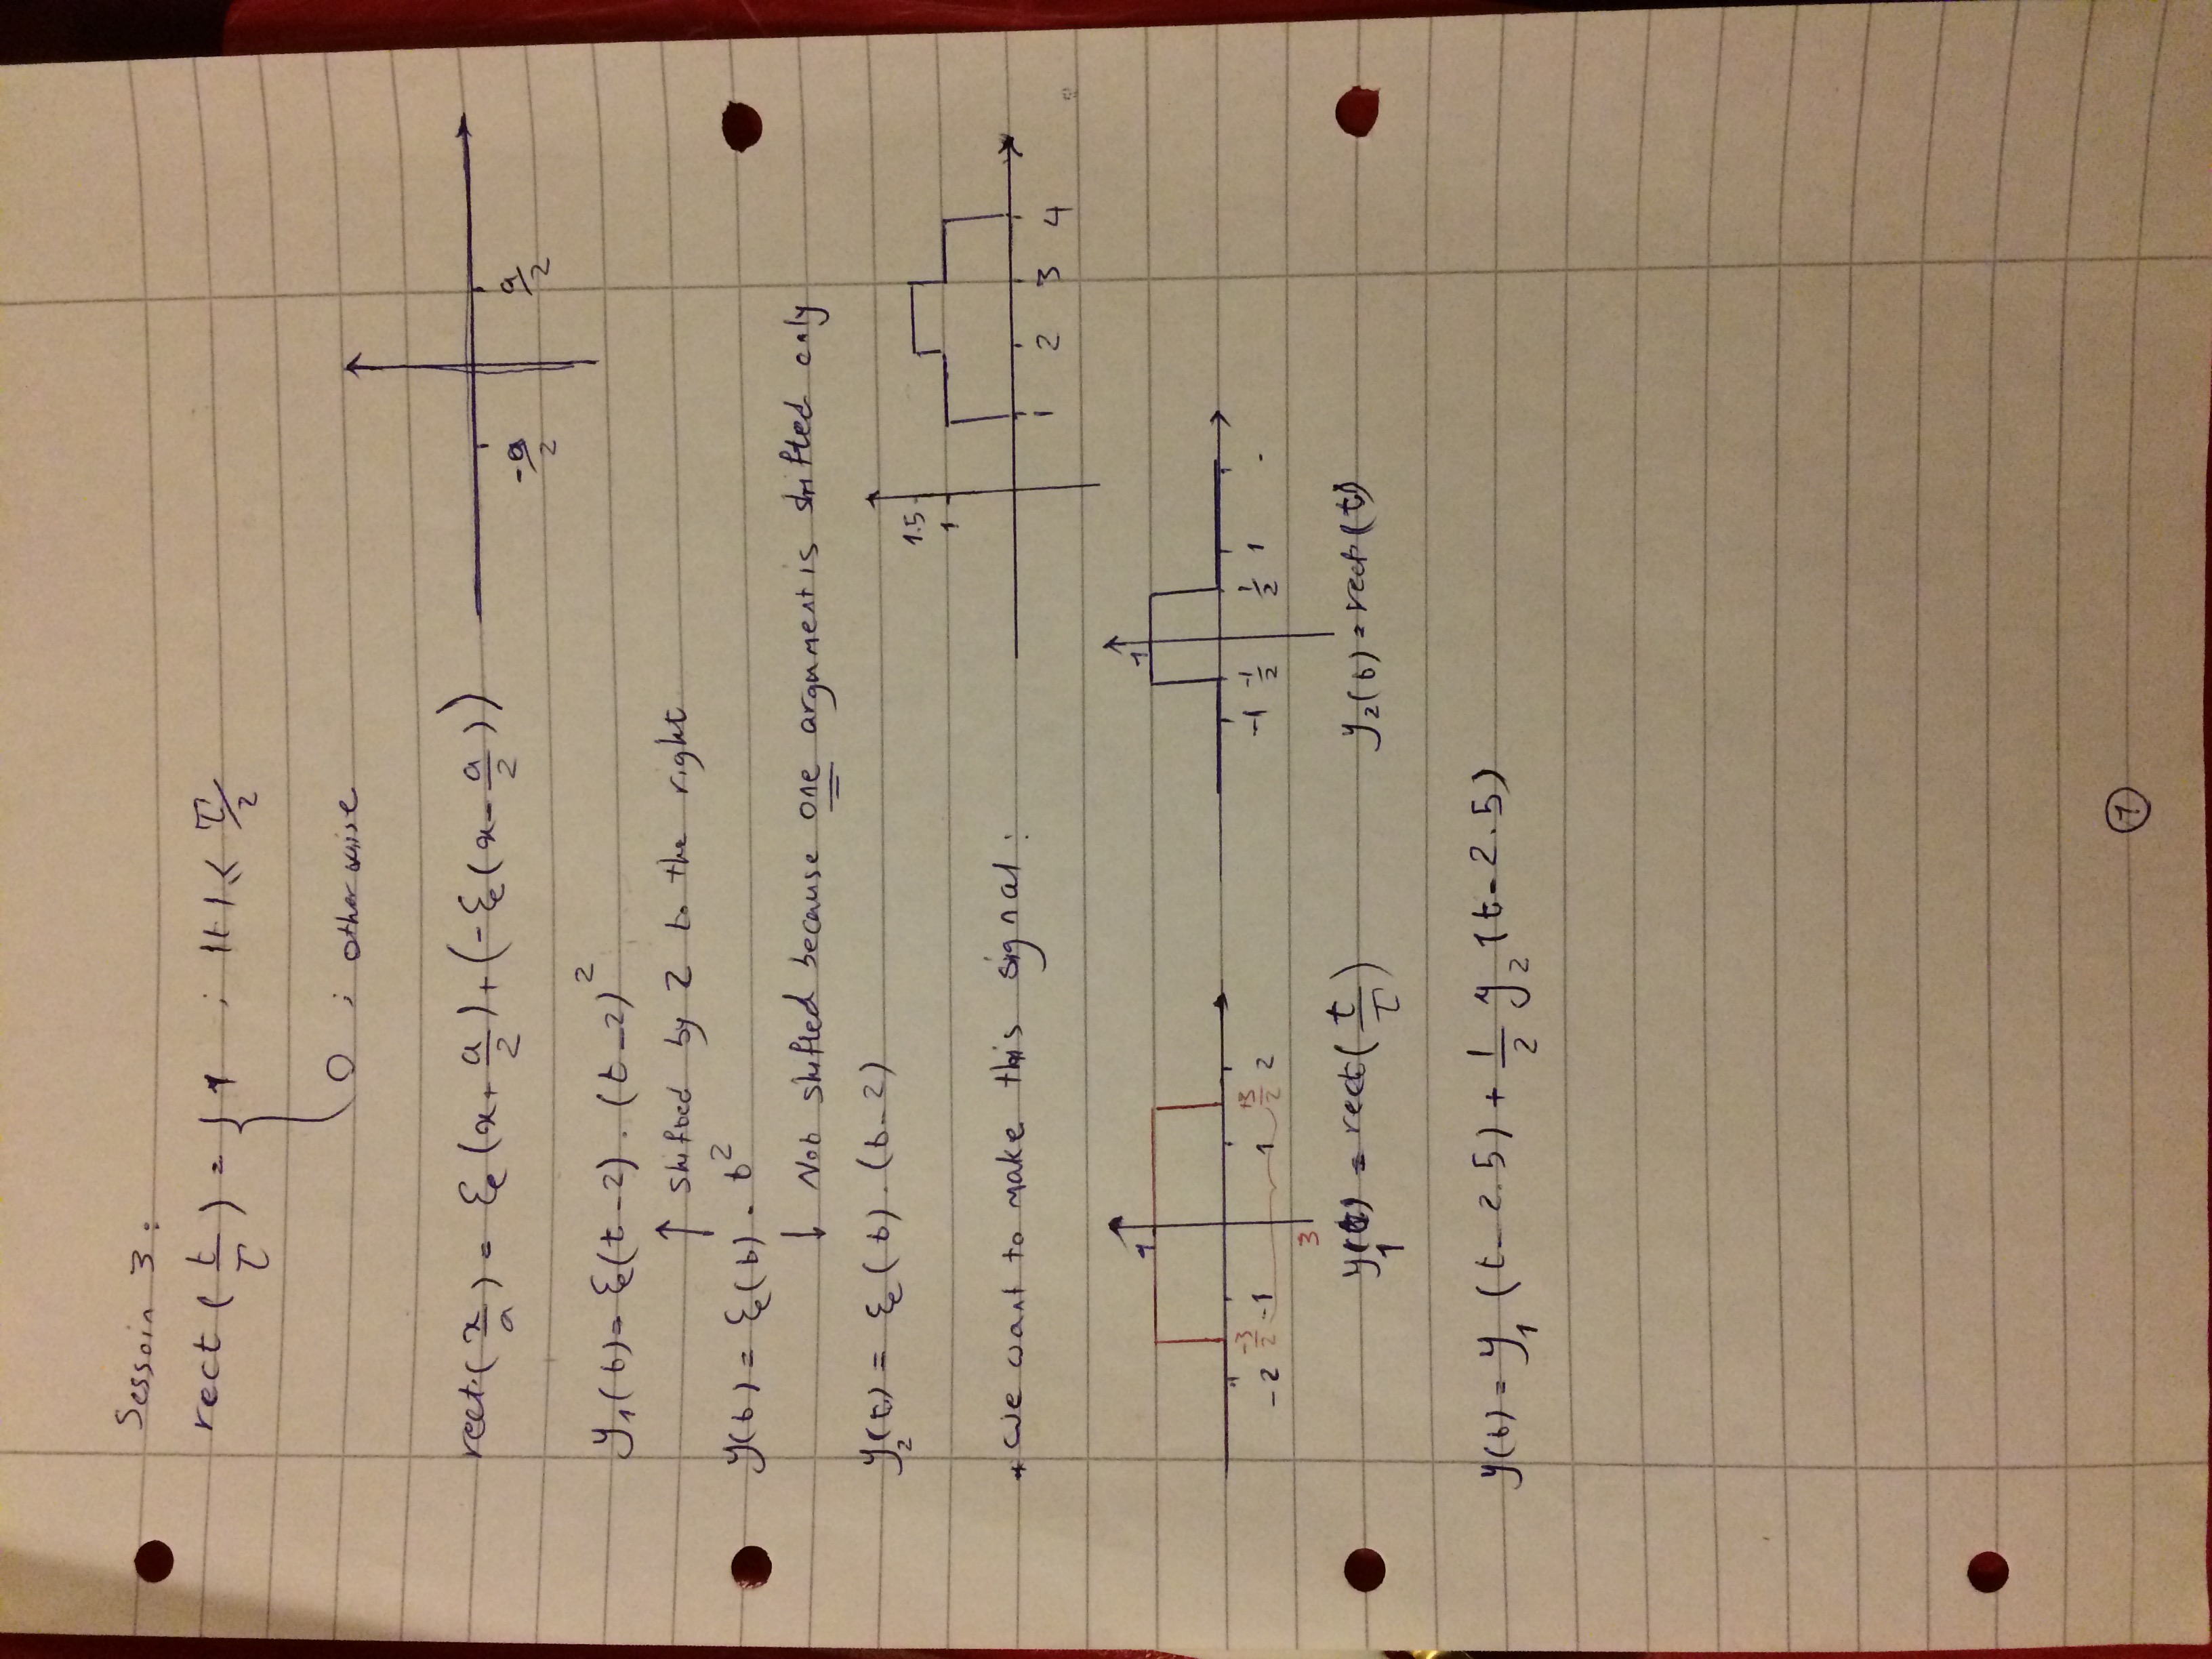 Sessoin 3 :
rect ( t/τ ) = { 1 ; |t| ≤ τ/2
0 ; otherwise
rect ( x/a ) = ε (x + a/2) + (-ε (x - a/2))
-a/2 a/2
y₁(t) = ε(t-2) . (t-2)²
↑ shifted by 2 to the right
y(t) = ε(t) . t²
↓ Not shifted because one argument is shifted only
y₂(t) = ε(t) . (t-2)
1.5
1
* we want to make this signal :
1 2 3 4
1 1
-2 -3/2 -1 1 +3/2 2 -1 -1/2 1/2 1
3
y₁(t) = rect ( t/τ ) y₂(t) = rect (t)
y(t) = y₁ (t - 2.5) + 1/2 y₂ (t - 2.5)
1